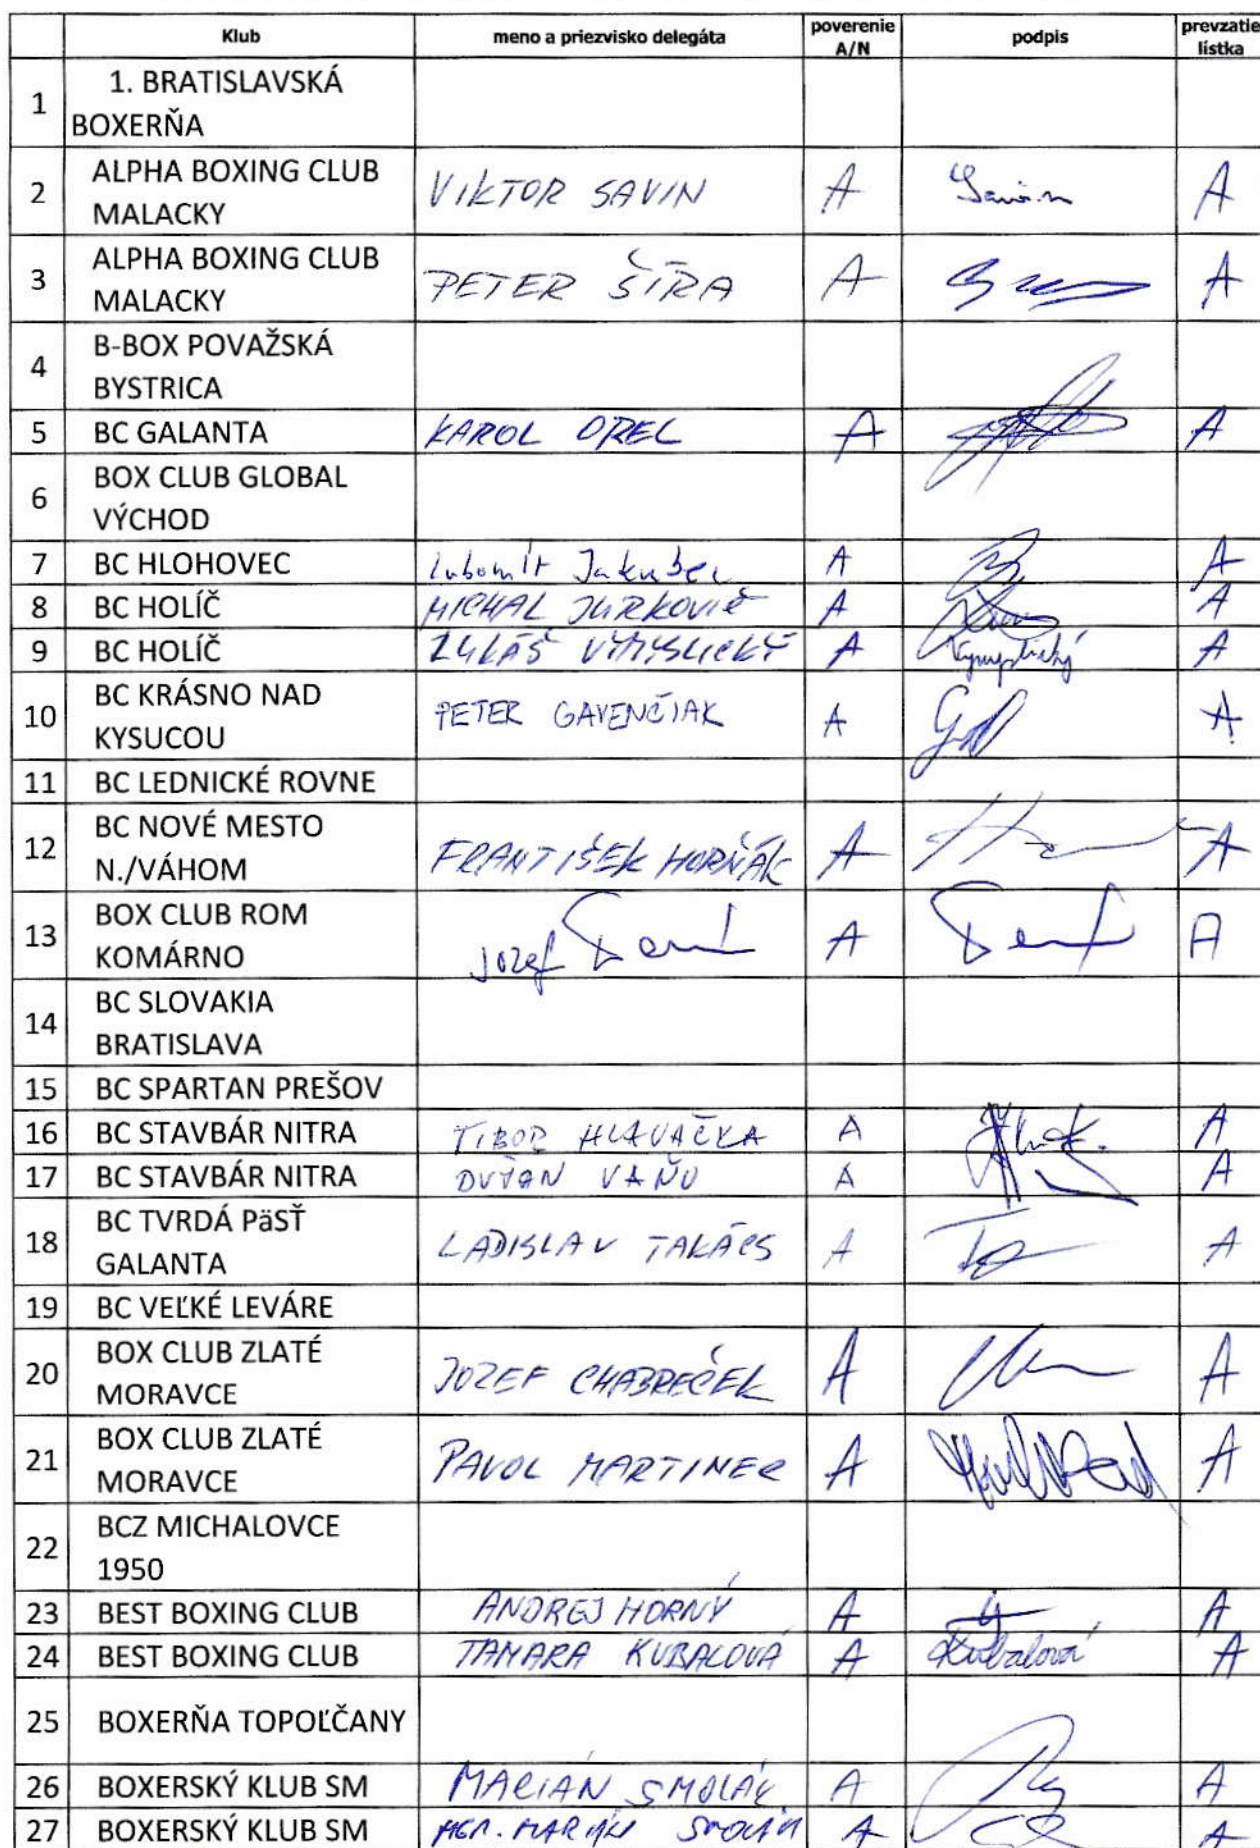 Klub meno a priezvisko delegáta poverenie A/N podpis prevzatie lístka
1 1. BRATISLAVSKÁ
BOXERŇA
2 ALPHA BOXING CLUB MALACKY VIKTOR SAVIN A A
3 ALPHA BOXING CLUB MALACKY PETER ŠÍRA A A
4 B-BOX POVAŽSKÁ
BYSTRICA
5 BC GALANTA KAROL OREL A A
6 BOX CLUB GLOBAL
VÝCHOD
7 BC HLOHOVEC Lubomír Jakubec A A
8 BC HOLÍČ MICHAL JURKOVIČ A A
9 BC HOLÍČ LUKÁŠ A A
10 BC KRÁSNO NAD
KYSUCOU PETER GAVENČIAK A A
11 BC LEDNICKÉ ROVNE
12 BC NOVÉ MESTO
N./VÁHOM FRANTIŠEK HORŇÁK A A
13 BOX CLUB ROM
KOMÁRNO Jozef A A
14 BC SLOVAKIA
BRATISLAVA
15 BC SPARTAN PREŠOV
16 BC STAVBÁR NITRA TIBOR HLAVAČKA A A
17 BC STAVBÁR NITRA DUŠAN VAŇO A A
18 BC TVRDÁ PäSŤ
GALANTA LADISLAV TAKÁCS A A
19 BC VEĽKÉ LEVÁRE
20 BOX CLUB ZLATÉ
MORAVCE JOZEF CHABREČEK A A
21 BOX CLUB ZLATÉ
MORAVCE PAVOL MARTINEC A A
22 BCZ MICHALOVCE
1950
23 BEST BOXING CLUB ANDREJ HORNÝ A A
24 BEST BOXING CLUB TAMARA KUBALOVÁ A Kubalová A
25 BOXERŇA TOPOĽČANY
26 BOXERSKÝ KLUB SM MARIÁN SMOLÁK A A
27 BOXERSKÝ KLUB SM MGR. MARIÁN A A